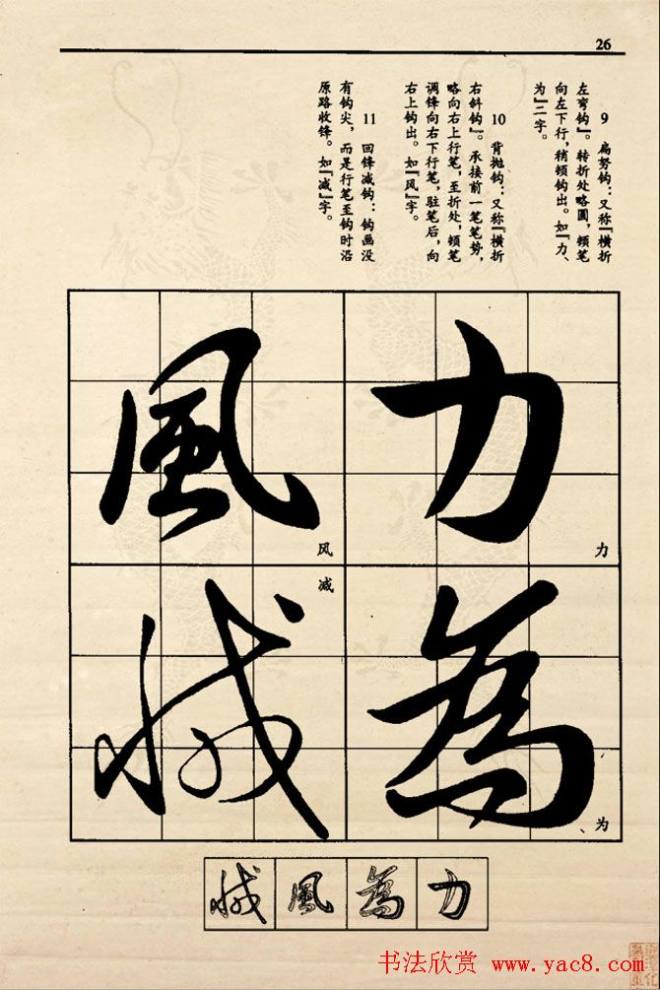 26
9 扁努钩：又称『横折
左弯钩』。转折处略圆，顿笔
向左下行，稍顿钩出。如『力、
为』二字。
10 背抛钩：又称『横折
右斜钩』。承接前一笔笔势，
略向右上行笔，至折处，顿笔
调锋向右下行笔，驻笔后，向
右上钩出。如『风』字。
11 回锋减钩：钩画没
有钩尖，而是行笔至钩时沿
原路收锋。如『减』字。
力
力
為
、为
風
风
減
减
力 為 風 減
书法欣赏 www.yac8.com